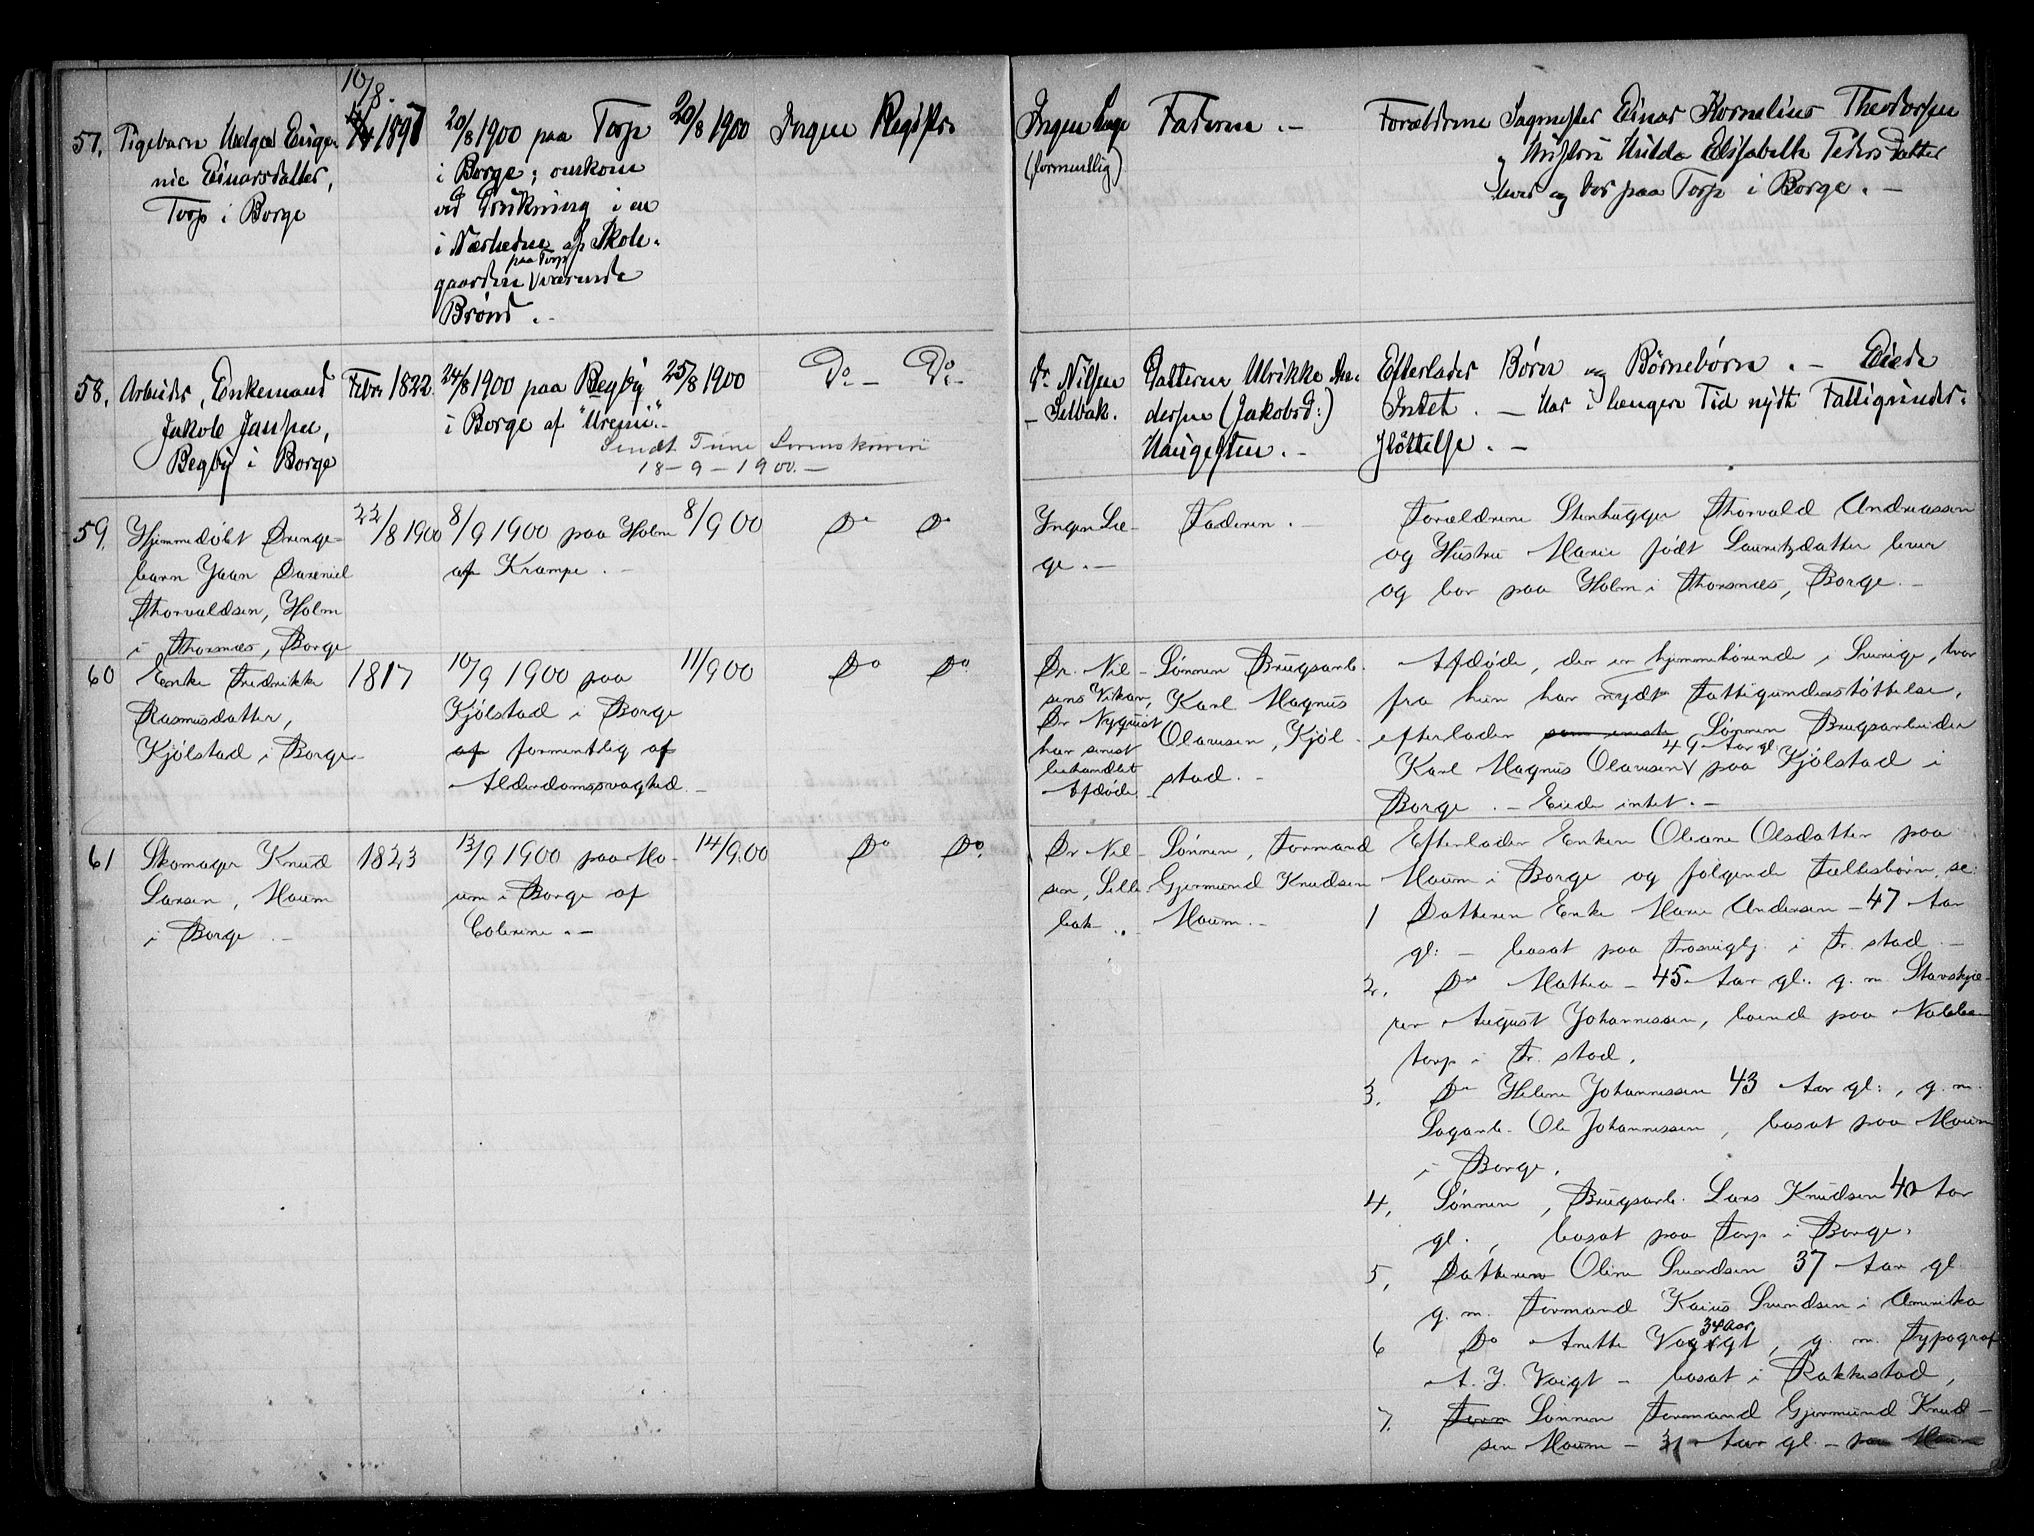 57. Pigebarn Helga Euge-
nie Einarsdatter,
Torp i Borge
10/8
1897
20/8 1900 paa Torp
i Borge; omkom
ved Drukning i en
i Nærheden af Skole-
paa Torp
gaarden værende
Brønd. -
20/8 1900
Ingen Register
Ingen Læge
(formentlig)
Faderen. -
Forældrene Sagmester Einar Kornelius Theodorsen
og Hustru Hilda Elisabeth Pedersdatter
lever og bor paa Torp i Borge. -
58. Arbeider, Enkemand
Jakob Jansen,
Begby i Borge
Febr. 1822
24/8 1900 paa Begby
i Borge af "Uremi".
Sendt Tune Sorenskriveri
18-9-1900.-
25/8 1900
Do - Do -
Dr. Nilsen
- Selbak.
Datteren Ulrikke An-
dersen (Jakobsd:)
Haugesten. -
Efterlader Børn og Børnebørn. - Eiede
Intet. - Har i længere Tid nydt Fattigunder-
støttelse. -
59. Hjemmedøbt Drenge-
barn Jaan
Thorvaldsen, Holm
i Thorsnæs, Borge
22/8 1900
8/9 1900 paa Holm
af Krampe. -
8/9 00
Do Do
Ingen Læ-
ge. -
Faderen. -
Forældrene Stenhugger Thorvald Andreassen
og Hustru Marie født Lauritzdatter lever
og bor paa Holm i Thorsnæs, Borge. -
60 Enke Fredrikke
Rasmusdatter,
Kjølstad i Borge
1817
10/9 1900 paa
Kjølstad i Borge
af formentlig af
Alderdomssvaghed. -
11/9 00
Do Do
Dr. Nil-
sens Vikar,
Dr Nyquist
har senest
behandlet
Afdøde. -
Sønnen Brugsarb.
Karl Magnus
Olausen, Kjøl-
stad. -
Afdøde, der er hjemmehørende i Sverige, hvor
fra hun har nydt Fattigunderstøttelse,
efterlader som eneste Sønnen Brugsarbeider
49 Aar gl.
Karl Magnus Olausen paa Kjølstad i
Borge. - Eiede intet. -
61 Skomager Knud
Larsen, Moum
i Borge. -
1823
13/9 1900 paa Mo-
um i Borge af
Colerine. -
14/9.00
Do Do.
Dr Nil-
sen, Selle-
bak. .
Sønnen, Formand
Gjermund Knudsen
Moum. -
Efterlader Enken Oleane Olsdatter paa
Moum i Borge og følgende Fællesbørn, se:
1 Datteren Enke Marie Andersen - 47 Aar
gl: - bosat paa Trosviglj. i Fr. stad. -
2. Do Mathea - 45 Aar gl. g. m. Stavskjæ-
rer August Johannessen, boende paa Nabbe-
torp i Fr. stad.
3. Do Helene Johannessen 43 Aar gl:, g. m.
Sagarb. Ole Johannessen, bosat paa Moum
i Borge.
4. Sønnen, Brugsarb. Lars Knudsen 40 Aar
gl., bosat paa Torp i Borge.
5. Datteren Oline Svendsen 37 Aar gl
g. m. Formand Kaius Svendsen i Amerika
34 Aar
6 Do Anette Voigt, g. m. Typograf
A. J. Voigt - bosat i Rakkestad,
7. Form Sønnen Formand Gjermund Knud-
sen Moum - 31 Aar gl. - paa Moum